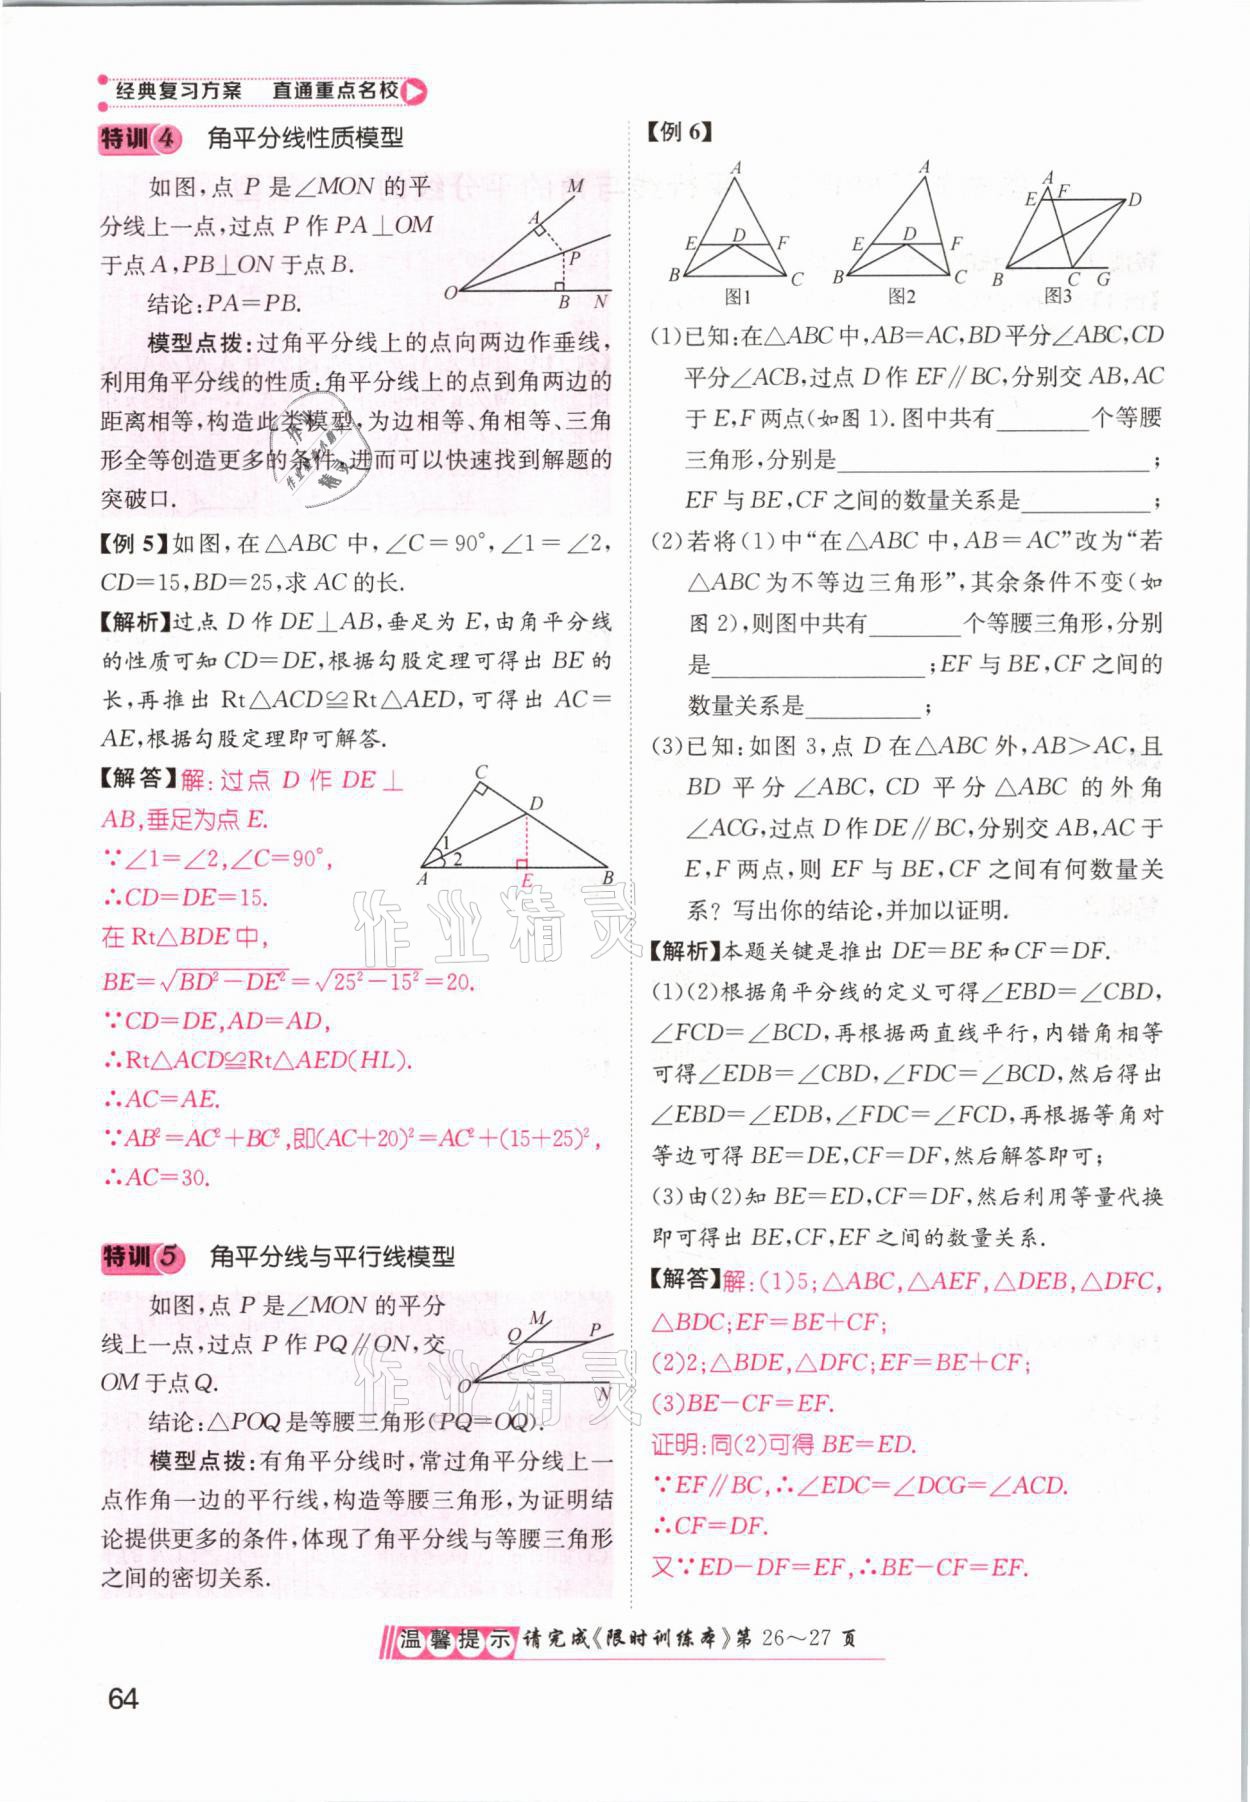 经典复习方案 直通重点名校
特训4 角平分线性质模型
如图,点 P 是∠MON 的平
分线上一点,过点 P 作 PA⊥OM
于点 A,PB⊥ON 于点 B.
结论:PA=PB.
M
A
P
O
B
N
模型点拨:过角平分线上的点向两边作垂线,
利用角平分线的性质:角平分线上的点到角两边的
距离相等,构造此类模型,为边相等、角相等、三角
形全等创造更多的条件,进而可以快速找到解题的
突破口.
【例 5】如图,在△ABC 中,∠C=90°,∠1=∠2,
CD=15,BD=25,求 AC 的长.
【解析】过点 D 作 DE⊥AB,垂足为 E,由角平分线
的性质可知 CD=DE,根据勾股定理可得出 BE 的
长,再推出 Rt△ACD≌Rt△AED,可得出 AC=
AE,根据勾股定理即可解答.
【解答】解:过点 D 作 DE⊥
AB,垂足为点 E.
∵∠1=∠2,∠C=90°,
∴CD=DE=15.
在 Rt△BDE 中,
BE=√BD²-DE²=√25²-15²=20.
∵CD=DE,AD=AD,
∴Rt△ACD≌Rt△AED(HL).
∴AC=AE.
∵AB²=AC²+BC²,即(AC+20)²=AC²+(15+25)²,
∴AC=30.
C
D
1
2
A
E
B
特训5 角平分线与平行线模型
如图,点 P 是∠MON 的平分
线上一点,过点 P 作 PQ∥ON,交
OM 于点 Q.
结论:△POQ 是等腰三角形(PQ=OQ).
M
Q
P
O
N
模型点拨:有角平分线时,常过角平分线上一
点作角一边的平行线,构造等腰三角形,为证明结
论提供更多的条件,体现了角平分线与等腰三角形
之间的密切关系.
【例 6】
A
E D F
B C
图1
A
E D F
B C
图2
A
E F D
B C G
图3
(1)已知:在△ABC 中,AB=AC,BD 平分∠ABC,CD
平分∠ACB,过点 D 作 EF∥BC,分别交 AB,AC
于 E,F 两点(如图 1).图中共有________个等腰
三角形,分别是________________________;
EF 与 BE,CF 之间的数量关系是__________;
(2)若将(1)中“在△ABC 中,AB=AC”改为“若
△ABC 为不等边三角形”,其余条件不变(如
图 2),则图中共有________个等腰三角形,分别
是________________;EF 与 BE,CF 之间的
数量关系是__________;
(3)已知:如图 3,点 D 在△ABC 外,AB>AC,且
BD 平分∠ABC,CD 平分△ABC 的外角
∠ACG,过点 D 作 DE∥BC,分别交 AB,AC 于
E,F 两点,则 EF 与 BE,CF 之间有何数量关
系?写出你的结论,并加以证明.
【解析】本题关键是推出 DE=BE 和 CF=DF.
(1)(2)根据角平分线的定义可得∠EBD=∠CBD,
∠FCD=∠BCD,再根据两直线平行,内错角相等
可得∠EDB=∠CBD,∠FDC=∠BCD,然后得出
∠EBD=∠EDB,∠FDC=∠FCD,再根据等角对
等边可得 BE=DE,CF=DF,然后解答即可;
(3)由(2)知 BE=ED,CF=DF,然后利用等量代换
即可得出 BE,CF,EF 之间的数量关系.
【解答】解:(1)5;△ABC,△AEF,△DEB,△DFC,
△BDC;EF=BE+CF;
(2)2;△BDE,△DFC;EF=BE+CF;
(3)BE-CF=EF.
证明:同(2)可得 BE=ED.
∵EF∥BC,∴∠EDC=∠DCG=∠ACD.
∴CF=DF.
又∵ED-DF=EF,∴BE-CF=EF.
作业精灵
作业精灵
温馨提示 请完成《限时训练本》第 26~27 页
64